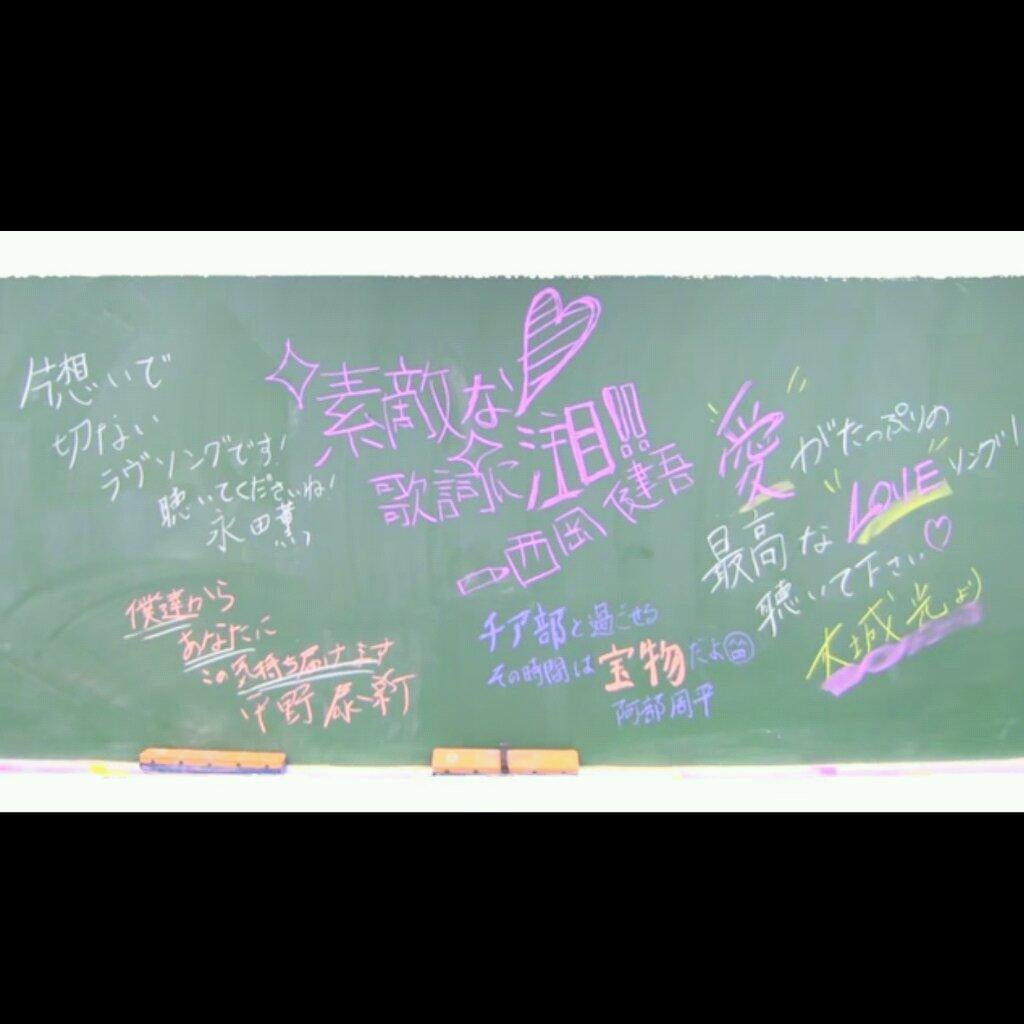 片想いで
切ない
ラヴソングです!
聴いてくださいね!
永田薫
素敵な
歌詞に注目!!!
西岡健吾
愛がたっぷりの
LOVEソング!
最高な
聴いて下さい♡
大城光より
僕達から
あなたに
この気持ち届けます
平野泰新
チア部と過ごせる
その時間は宝物だよ
阿部周平